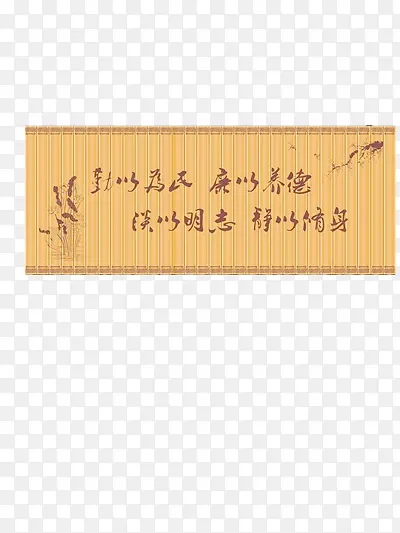 勤以為民 廉以养德
淡以明志 静以脩身